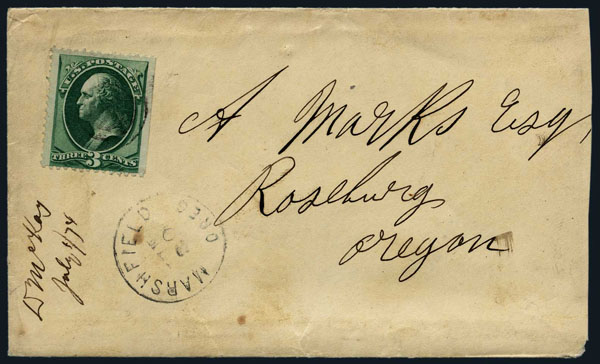 U.S. POSTAGE
THREE 3 CENTS
A Marks Esq,
Roseburg
Oregon
MARSHFIELD OREG
July 8/74